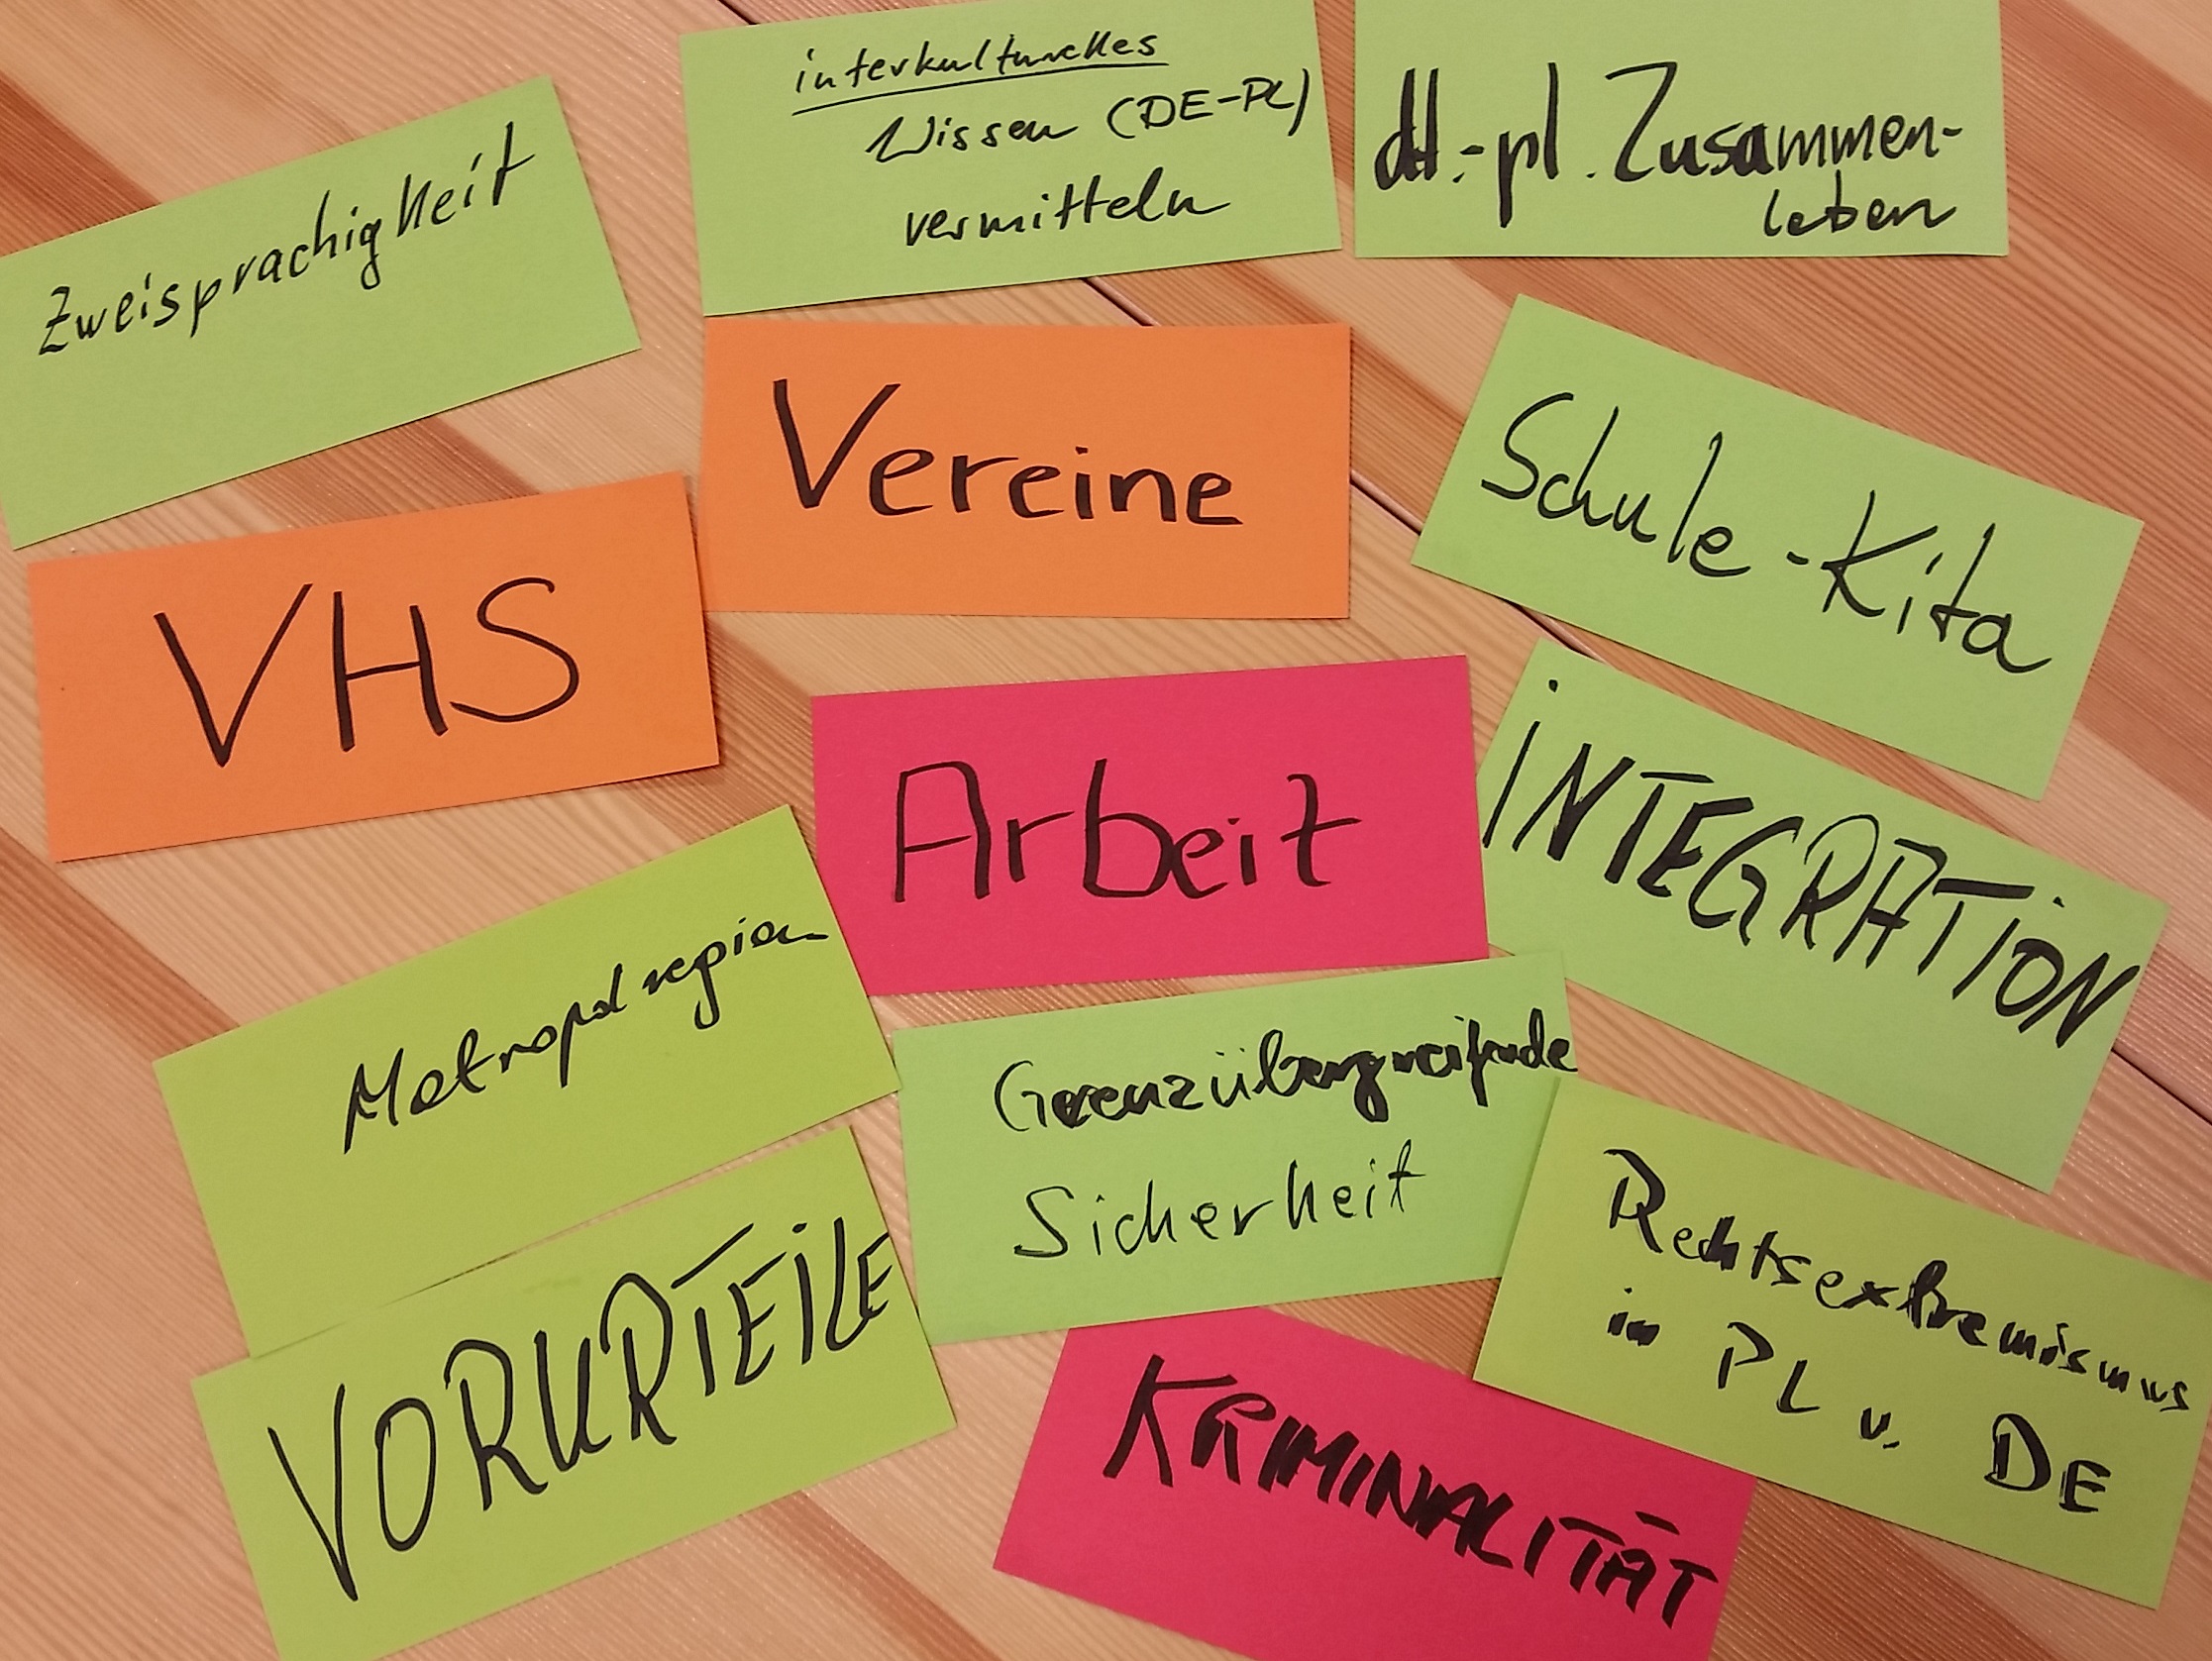 Zweisprachigkeit
interkulturelles
Wissen (DE-PL)
vermitteln
dt.-pl. Zusammen-
leben
Vereine
Schule-Kita
VHS
Arbeit
INTEGRATION
Metropolregion
Grenzübergreifende
Sicherheit
Rechtsextremismus
in PL u. DE
VORURTEILE
KRIMINALITÄT